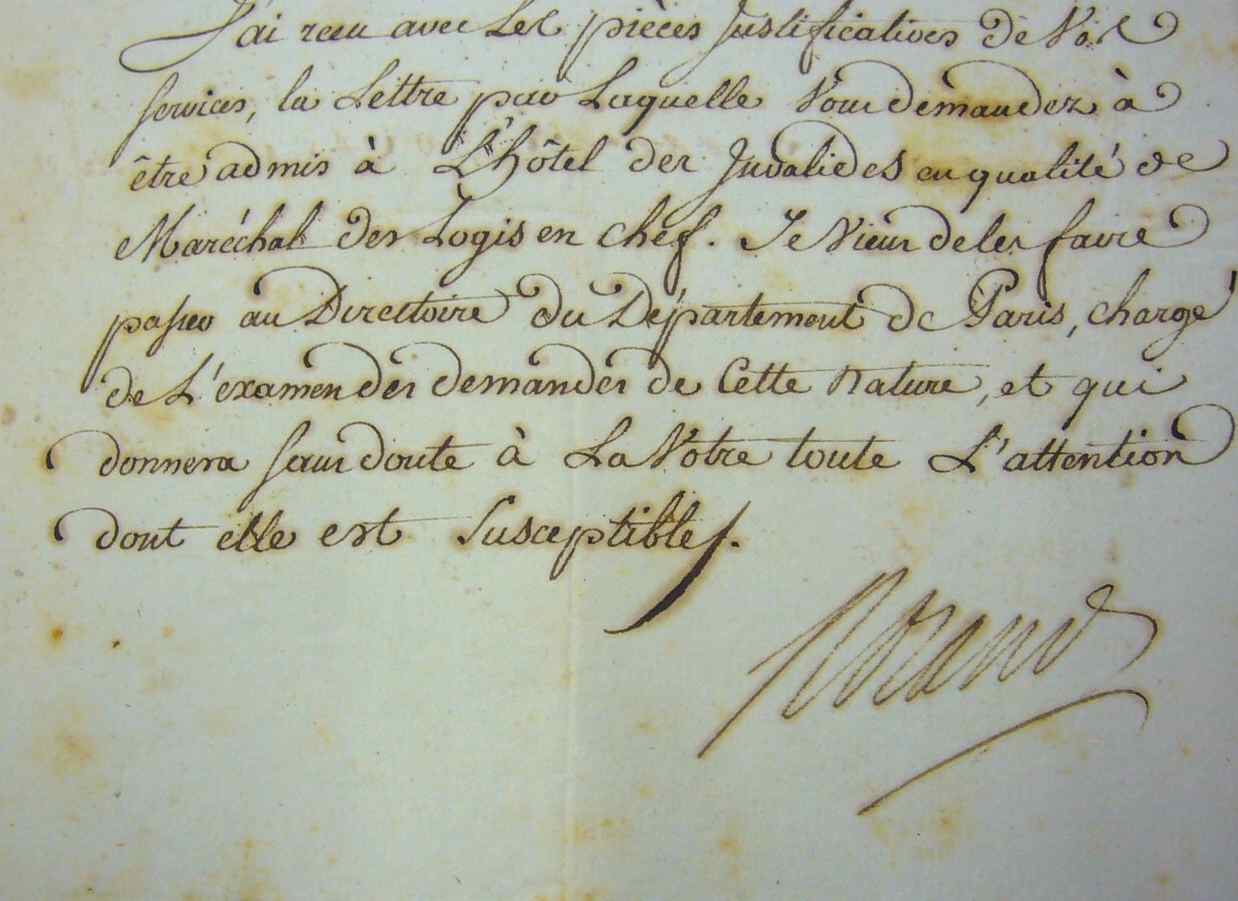 J'ai reçu avec Les pièces Justificatives de Vos
services, la Lettre par Laquelle Vous demandez à
être admis à L'hôtel des Invalides en qualité de
Maréchal des Logis en chef. Je Viens de les faire
passer au Directoire du Département de Paris, chargé
de L'examen des demandes de Cette nature, et qui
donnera sans doute à La Vôtre toute L'attention
dont elle est Susceptible.